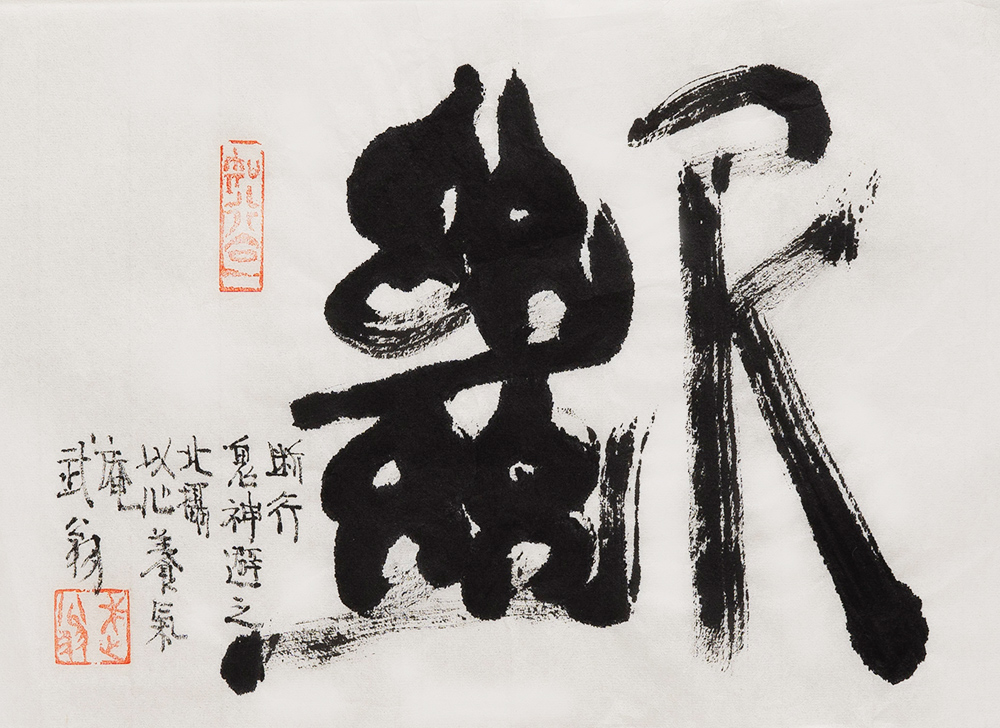 斷
断行
鬼神避之
北攝
以心養氣
庵
武翁